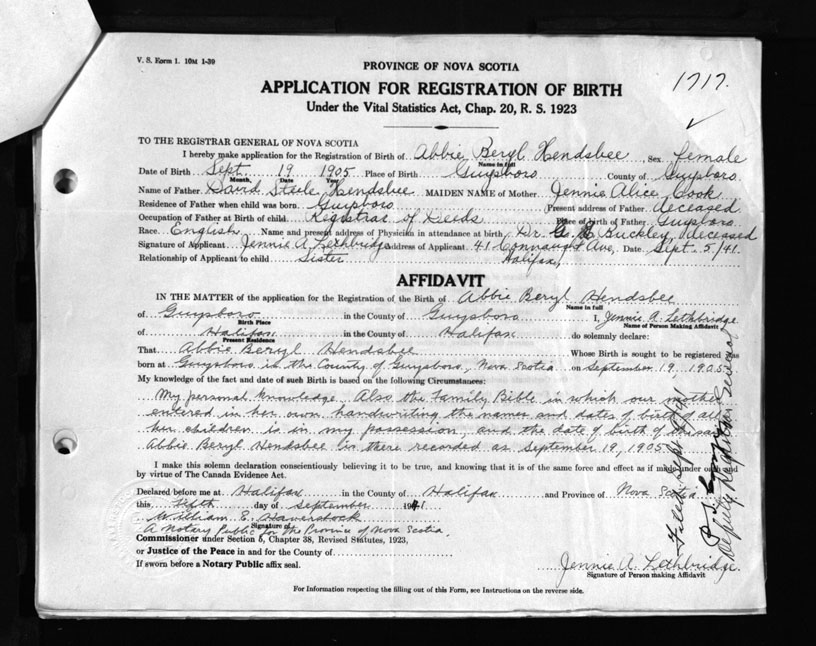 V. S. Form 1. 10M 1-39
PROVINCE OF NOVA SCOTIA
APPLICATION FOR REGISTRATION OF BIRTH
1717.
Under the Vital Statistics Act, Chap. 20, R. S. 1923
TO THE REGISTRAR GENERAL OF NOVA SCOTIA
I hereby make application for the Registration of Birth of Abbie Beryl Hendsbee, Sex female
Name in full
Date of Birth Sept. 19 1905 Place of Birth Guysboro County of Guysboro.
Month Date Year
Name of Father David Steele Hendsbee MAIDEN NAME of Mother Jennie Alice Cook
Residence of Father when child was born. Guysboro Present address of Father deceased
Occupation of Father at Birth of child. Registrar of Deeds Place of Birth of Father Guysboro
Race. English Name and present address of Physician in attendance at birth, Dr. G. E. Buckley, deceased
Signature of Applicant Jennie A. Lethbridge address of Applicant 41 Connaught Ave, Date Sept. 5/41.
Relationship of Applicant to child Sister Halifax,
AFFIDAVIT
IN THE MATTER of the application for the Registration of the Birth of Abbie Beryl Hendsbee
Name in full
of Guysboro in the County of Guysboro I, Jennie A. Lethbridge
Birth Place Name of Person Making Affidavit
of Halifax in the County of Halifax do solemnly declare:
Present Residence
That Abbie Beryl Hendsbee Whose Birth is sought to be registered was
born at Guysboro in the County of Guysboro, Nova Scotia on September 19 1905
My knowledge of the fact and date of such Birth is based on the following Circumstances:
My personal knowledge. Also the Family Bible in which our mother
entered in her own handwriting the names and dates of birth of all
her children is in my possession, and the date of birth of the said
Abbie Beryl Hendsbee is there recorded as September 19, 1905
I make this solemn declaration conscientiously believing it to be true, and knowing that it is of the same force and effect as if made under oath and
by virtue of The Canada Evidence Act.
Declared before me at Halifax in the County of Halifax and Province of Nova Scotia
this Fifth day of September 1941
William E. Haverstock
Signature of
A Notary Public for the Province of Nova Scotia.
Commissioner under Section 5, Chapter 38, Revised Statutes, 1923,
or Justice of the Peace in and for the County of
If sworn before a Notary Public affix seal.
Jennie A. Lethbridge.
Signature of Person making Affidavit
For Information respecting the filling out of this Form, see Instructions on the reverse side.
Filed Sept
Deputy Registrar General